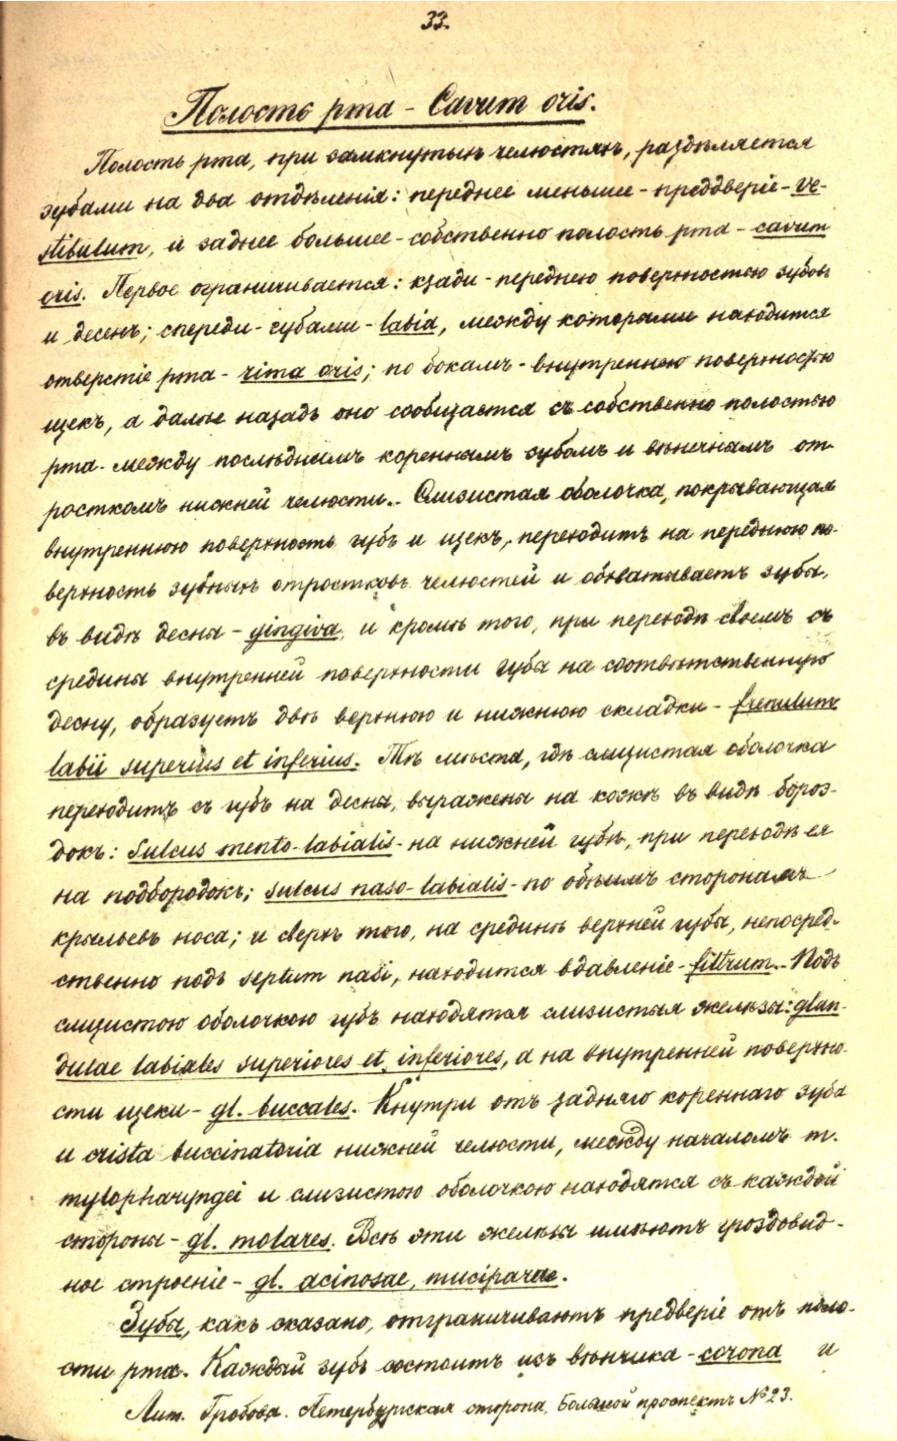 33.
Полость рта – Cavum oris.
Полость рта, при замкнутыхъ челюстяхъ, раздѣляется
зубами на два отдѣленія: переднее меньшее – преддверіе – ve-
stibulum, и заднее большее – собственно полость рта – cavum
oris. Первое ограничивается: кзади – переднею поверхностью зубовъ
и десенъ; спереди – губами – labia, между которыми находится
отверстіе рта – rima oris; по бокамъ – внутреннею поверхностью
щекъ, а далѣе назадъ оно сообщается съ собственно полостью
рта – между послѣднимъ кореннымъ зубомъ и вѣнечнымъ от-
росткомъ нижней челюсти. – Слизистая оболочка, покрывающая
внутреннюю поверхность губъ и щекъ, переходитъ на переднюю по-
верхность зубныхъ отростковъ челюстей и обхватываетъ зубы,
въ видѣ десны – gingiva, и кромѣ того, при переходѣ своемъ съ
средины внутренней поверхности губы на соотвѣтственную
десну, образуетъ двѣ верхнюю и нижнюю складки – frenulum
labii superius et inferius. Тѣ мѣста, гдѣ слизистая оболочка
переходитъ съ губъ на десны, выражены на кожѣ въ видѣ бороз-
докъ: sulcus mento-labialis – на нижней губѣ, при переходѣ ея
на подбородокъ; sulcus naso-labialis – по обѣимъ сторонамъ
крыльевъ носа; и сверхъ того, на срединѣ верхней губы, непосред-
ственно подъ septum nasi, находится вдавленіе – filtrum. – Подъ
слизистою оболочкою губъ находятся слизистыя железы: glan-
dulae labiales superiores et inferiores, а на внутренней поверхно-
сти щеки – gl. buccales. Кнутри отъ задняго кореннаго зуба
и crista buccinatoria нижней челюсти, между началомъ m.
mylopharyngei и слизистою оболочкою находятся съ каждой
стороны – gl. molares. Всѣ эти железы имѣютъ гроздовид-
ное строеніе – gl. acinosae, muciparae.
Зубы, какъ сказано, отграничиваютъ предверіе отъ поло-
сти рта. Каждый зубъ состоитъ изъ вѣнчика – corona и
Лит. Гробова. Петербургская сторона, Большой проспектъ №23.